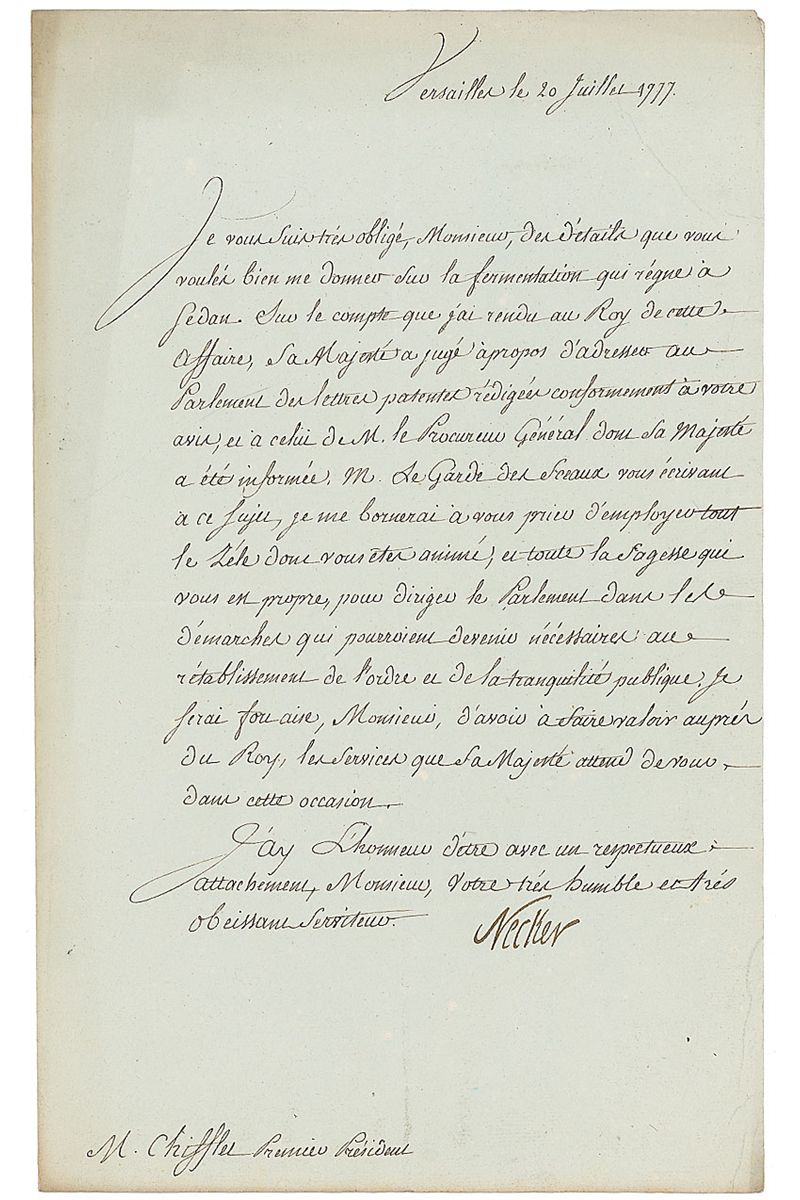 Versailles le 20 Juillet 1777.
Je vous suis très obligé, Monsieur, des détails que vous
voulés bien me donner sur la fermentation qui régne à
Sédan. Sur le compte que j'ai rendu au Roy de cette
affaire, Sa Majesté a jugé àpropos d'adresser au
Parlement des lettres patentes rédigées conformement à votre
avis, et a celui de M. le Procureur Général dont Sa Majesté
a été informée. M. Le Garde des Sceaux vous écrivant
à ce sujet, je me bornerai à vous prier d'employer tout
le Zéle dont vous étes animé, et toute la sagesse qui
vous est propre, pour diriger le Parlement dans les
démarches qui pourroient devenir nécessaires au
rétablissement de l'ordre et de la tranquilité publique. Je
serai fort aise, Monsieur, d'avoir à faire valoir auprés
du Roy, les services que Sa Majesté attend de vous
dans cette occasion.
J'ay L'honneur d'être avec un respectueux
attachement, Monsieur, Votre trés humble et trés
obeissant Serviteur.
Necker
M. Chifflet Premier Président